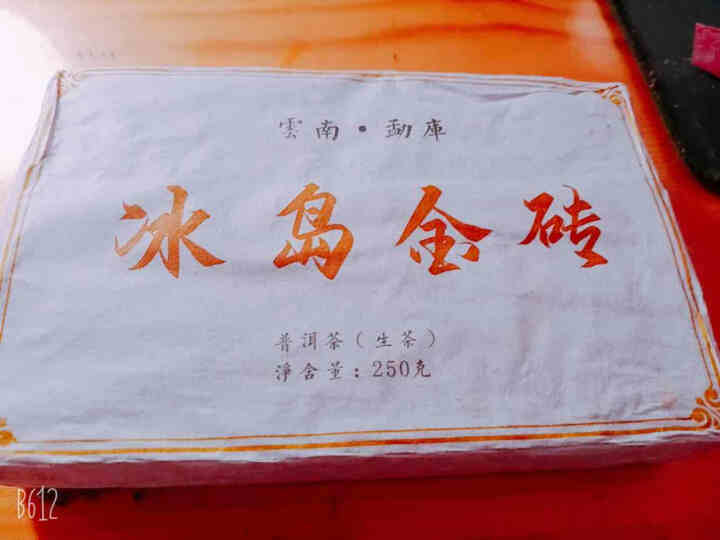 雲南·勐庫
冰岛金砖
普洱茶（生茶）
净含量：250克
B612